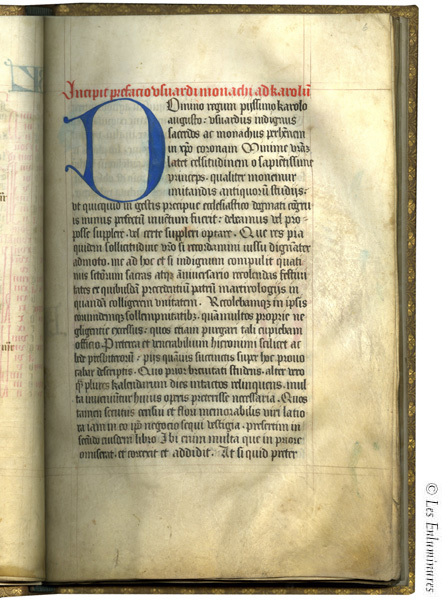 Incipit prefacio usuardi monachi ad karolū
Domino regum piissimo karolo
augusto: usuardus indignus
sacerdos ac monachus perhēnem
in xp̄o coronam Minime vr̄az
latet celsitudinem o sapientissime
princeps. qualiter monemur
imitandis antiquorū studijs.
ut quicquid in gestis precipue ecclesiastici dogmatis
minus perfectū inuentum fuerit: debeamus vel pro
posse supplere. vel certe suppleri optare. Que res pia
quidem sollicitudine
admoto. me ad hoc et si indignum compulit quati
nus sctōrum sacras atqz anniuersario recolendas festiui
tates ex quibusdā precedentium patrū martirologijs in
quandā colligerem unitatem. Recolebamqz in ipsis
eorundemqz sollempnitatibz. quā multos proprie ne
gligentie excessus: quos etiam purgari tali cupiebam
officio. Preterea et uenerabilium hieronimi scilicet ac
bede presbiterorū: pijs quāuis succincte super hoc prouo
cabar descriptis. Quorū prior breuitati studens. alter vero
qz plures kalendarum dies intactos relinquens. mul
ta inueniuntur huius operis preterisse necessaria. Quos
tamen secutus censui et flori memorabilis viri latio
ra iam in eo ip̄o negocio sequi vestigia. presertim in
secūdo eiusdem libro. Ibi enim multa que in priore
omiserat. et correxit et addidit. At si quid preter
© Les Enluminures